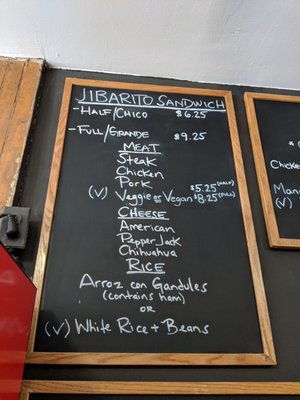 JIBARITO SANDWICH
-HALF/CHICO $6.25
-FULL/GRANDE $9.25
MEAT
Steak
Chicken
Pork
(V) Veggie or Vegan $5.25 (HALF) $8.25 (FULL)
CHEESE
American
PepperJack
Chihuahua
RICE
Arroz con Gandules
(contains ham)
OR
(V) White Rice + Beans
Chicke
Man
(V)